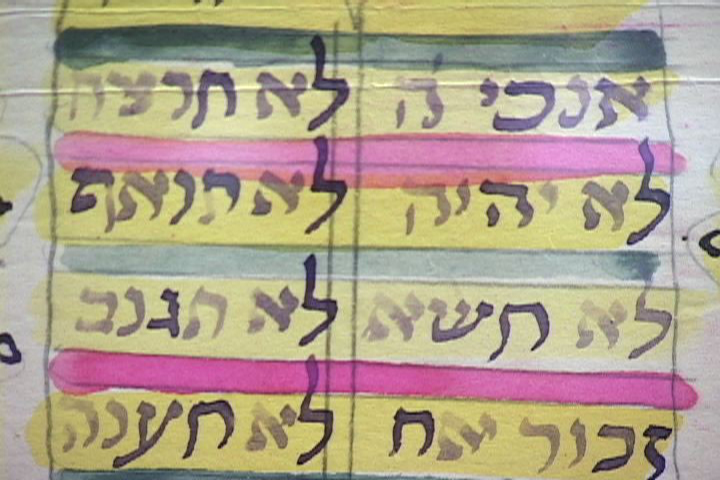 אנכי ה'
לא יהיה
לא תשא
זכור את
לא תרצח
לא תנאף
לא תגנב
לא תענה